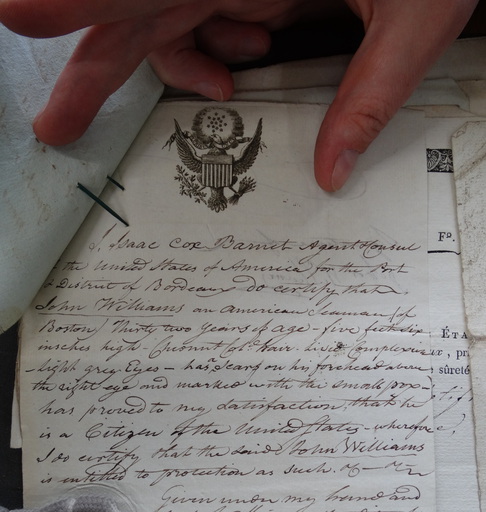 I, Isaac Cox Barnet Agent & Consul
of the United States of America for the Port
& District of Bordeaux do certify that
John Williams an American Seaman (of
Boston) Thirty two Years of age - five feet six
inches high - Chesnut Col.d Hair - Complexion
light grey Eyes - has a Scar on his forehead above
the right eye and marked with the small pox -
has proved to my satisfaction, that he
is a Citizen of the United States - wherefore
I do certify that the said John Williams
is entitled to protection as such. &c - &c
Given under my hand and
FD.
ÉTA
er, pr
sûreté